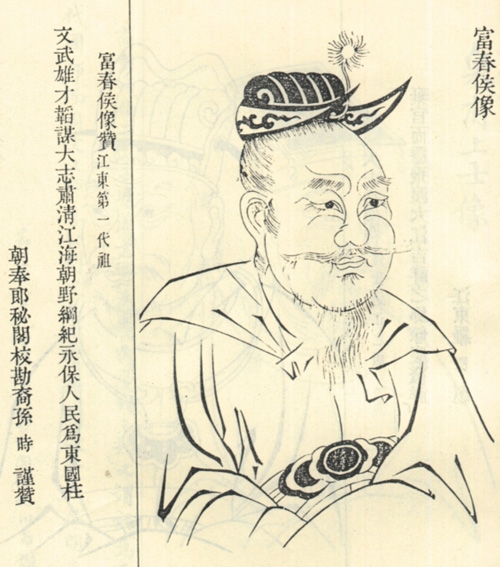 富春侯像
富春侯像贊 江東第一代祖
文武雄才韜謀大志肅清江海朝野綱紀永保人民爲東國柱
朝奉郎秘閣校勘裔孫 時 謹贊